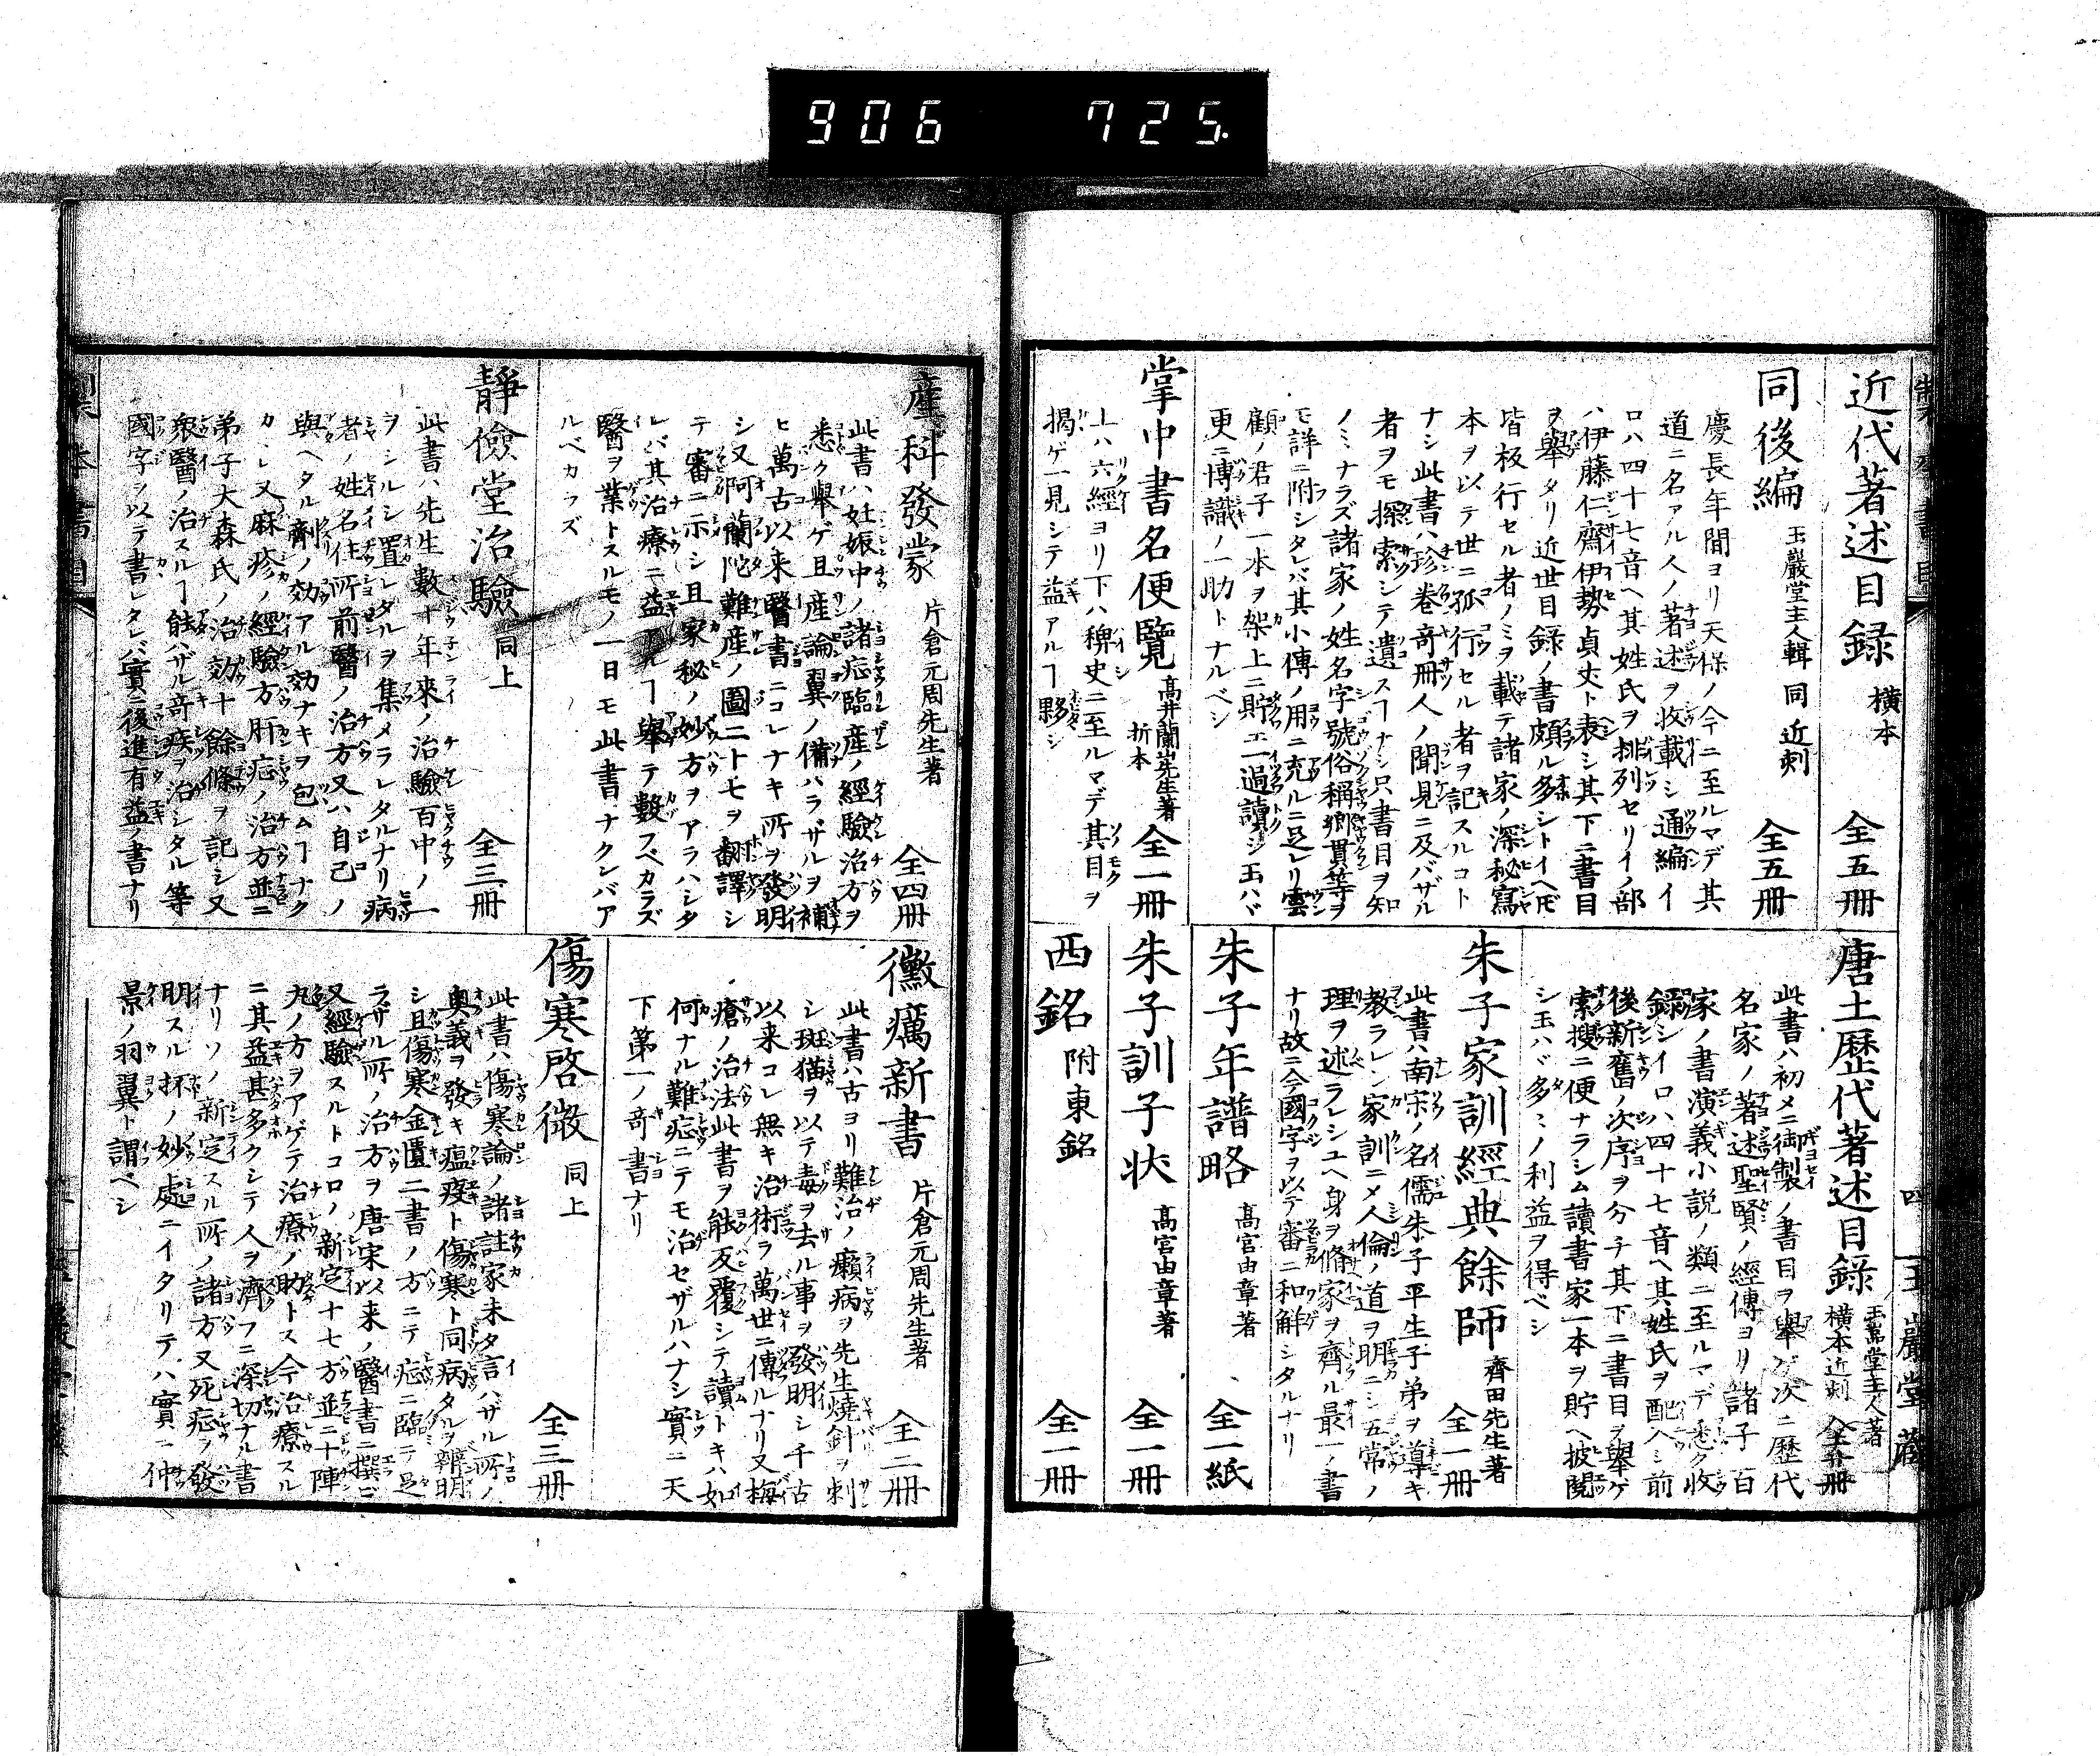 906 725
製本書目
四
玉巖堂藏
近代著述目録 横本 全五冊
同後編 玉巖堂主人輯 同 近刻 全五冊
慶長年間ヨリ天保ノ今ニ至ルマデ其
道ニ名アル人ノ著述ヲ收載シ通編イ
ロハ四十七音ヘ其姓氏ヲ排列セリイノ部
ハ伊藤仁齋伊勢貞丈ト表シ其下ニ書目
ヲ舉タリ近世目録ノ書頗ル多シトイヘ𪜈
皆板行セル者ノミヲ載テ諸家ノ深秘寫
本ヲ以テ世ニ孤行セル者ヲ記スルコト
ナシ此書ハ珍卷奇冊人ノ聞見ニ及バザル
者ヲモ探索シテ遺スヿナシ只書目ヲ知
ノミナラズ諸家ノ姓名字號俗稱郷貫等ヲ
モ詳ニ附シタレバ其小傳ノ用ニ充ルニ足レリ雲
顧ノ君子一本ヲ架上ニ貯ヱ一過讀シ玉ハヾ
更ニ博識ノ一助トナルベシ
掌中書名便覽 高井蘭山先生著 折本 全一冊
上ハ六經ヨリ下ハ稗史ニ至ルマデ其目ヲ
揭ゲ一見シテ益アルヿ夥シ
唐土歴代著述目錄 玉巖堂主人著 橫本近刻 全五冊
此書ハ初メニ御製ノ書目ヲ舉ゲ次ニ歴代
名家ノ著述聖賢ノ經傳ヨリ諸子百
家ノ書演義小説ノ類ニ至ルマデ悉ク收
録シイロハ四十七音ヘ其姓氏ヲ配入シ前
後新舊ノ次序ヲ分チ其下ニ書目ヲ舉ゲ
索搜ニ便ナラシム讀書家一本ヲ貯ヘ披閲
シ玉ハヾ多々ノ利益ヲ得ベシ
朱子家訓經典餘師 齊田先生著 全一冊
此書ハ南宋ノ名儒朱子平生子弟ヲ導キ
教ラレシ家訓ニメ人倫ノ道ヲ明ニシ五常ノ
理ヲ述ラレシユヘ身ヲ脩家ヲ齊ル最一ノ書
ナリ故ニ今國字ヲ以テ審ニ和解シタルナリ
朱子年譜略 高宮由章著 全一紙
朱子訓子状 高宮由章著 全一冊
西銘 附東銘 全一冊
產科發蒙 片倉元周先生著 全四冊
此書ハ妊娠中ノ諸症臨産ノ經驗治方ヲ
悉ク舉ゲ且産論翼ノ備ハラザルヲ補
ヒ萬古以来醫書ニコレナキ所ヲ發明
シ又阿蘭陀難産ノ圖二十七ヲ翻譯シ
テ審ニ示シ且家秘ノ妙方ヲアラハシタ
レバ其治療ニ益アルヿ舉テ數フベカラズ
醫ヲ業トスルモノ一日モ此書ナクンバア
ルベカラズ
靜儉堂治驗 同上 全三冊
此書ハ先生數十年來ノ治驗百中ノ一
ヲシルシ置レタルヲ集メラレタルナリ病
者ノ姓名住所前醫ノ治方又ハ自己ノ
與ヘタル劑ノ効アル効ナキヲ包ムヿナク
カヽレ又麻疹ノ經驗方肝症ノ治方並ニ
弟子大森氏ノ治効十餘條ヲ記シ又
衆醫ノ治スルヿ能ハザル奇疾ヲ治シタル等
國字ヲ以テ書レタレバ實ニ後進有益ノ書ナリ
黴癘新書 片倉元周先生著 全二冊
此書ハ古ヨリ難治ノ癩病ヲ先生燒針ヲ刺
シ斑猫ヲ以テ毒ヲ去ル事ヲ發明シ千古
以来コレ無キ治術ヲ萬世ニ傳ルナリ又梅
瘡ノ治法此書ヲ能反覆シテ讀トキハ如
何ナル難症ニテモ治セザルハナシ實ニ天
下第一ノ奇書ナリ
傷寒啓微 同上 全三冊
此書ハ傷寒論ノ諸註家未タ言ハザル所ノ
奧義ヲ發キ瘟疫ト傷寒ト同病タルヲ辨明
シ且傷寒金匱二書ノ方ニテ症ニ臨テ足
ラザル所ノ治方ヲ唐宋以来ノ醫書ニ撰ビ
又經驗スルトコロノ新定十七方並ニ十陣
丸ノ方ヲアゲテ治療ノ助トス今治療スル
ニ其益甚多クシテ人ヲ濟フニ深切ナル書
ナリソノ新定スル所ノ諸方又死症ヲ發
明スル抔ノ妙處ニイタリテハ實ニ仲
景ノ羽翼ト謂ベシ
製本書目